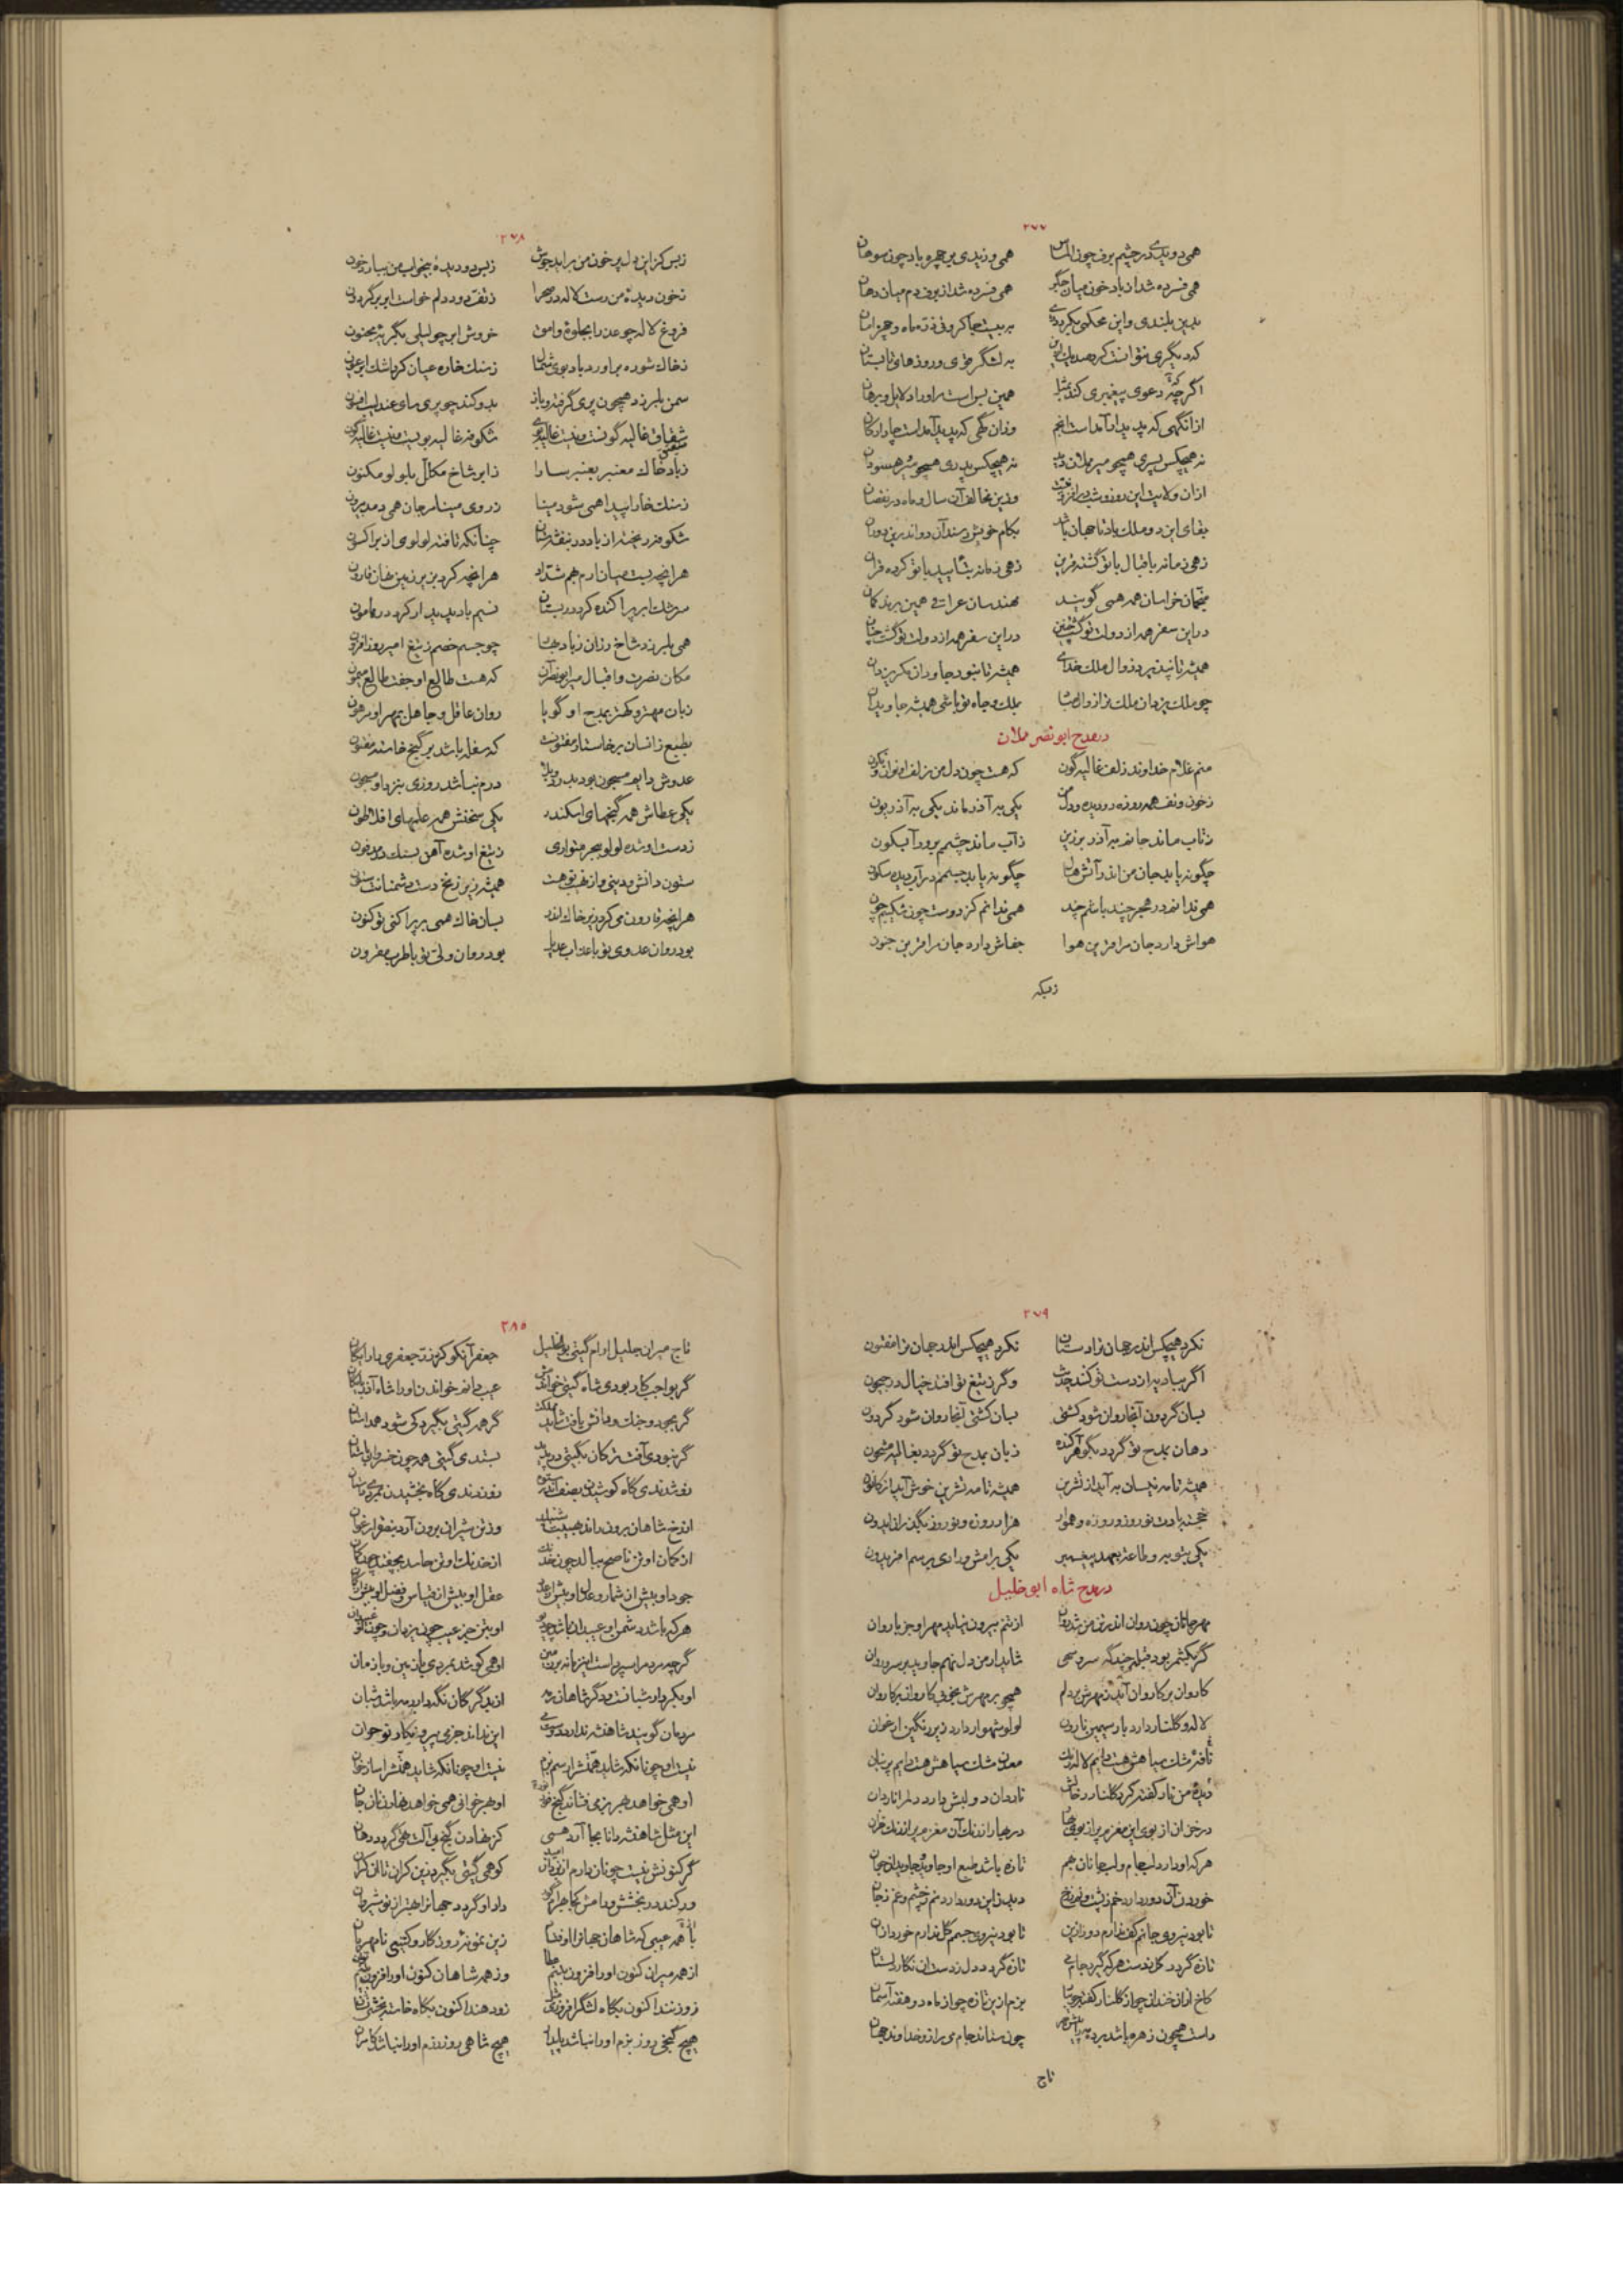 ۲۷۷
همی دویدی در چشم برف چون الماس همی وزیدی بر چهره باد چون سوهان
همی فسرده شد از باد خون میان جگر همی فسرده شد از برف دم میان دهان
بدین بلندی و این محکمی بکردی
که دیگری نتوانست کرد به لشگر قوی و روزهای تابستان
اگرچه دعوی پیغمبری کند همین بس است مر او را دلایل و برهان
ازانگهی که پدید آمد است انجم وزان گهی که پدید آمد است چار ارکان
نه هیچکس پسری همچو میر مملان دید نه هیچکس پدری همچو میر وهسودان
ازان ولایت این روز و شب در افزونی وزین مخالف آن سال و ماه در نقصان
بقای این دو ملک باد تا جهان باشد بکام خویش رسند آن دو اندرین دوران
زهی زمانه باقبال با تو گشته قرین زهی زمانه بتأیید با تو کرده قران
منجمان خراسان همه همی گویند مهندسان عراقی همین برند گمان
در این سفر همه از دولت تو گشت چنین در این سفر همه از دولت تو گشت چنان
همیشه تا نپذیرد زوال ملک خدای همیشه تا نبود جاودان مگر یزدان
چو ملک یزدان ملک ترا زوال مباد بملک و جاه تو باشی همیشه جاویدان
در مدح ابو نصر مملان
منم غلام خداوند زلف غالیه گون که هست چون دل من زلف او نوان و نگون
ز خون و تف همه روزه دو دیده و دل من یکی به آذر ماند یکی به آذریون
ز تاب ماند جانم به آذر برزین ز آب ماند چشمم برود آبسکون
چگونه یابد جان من اندر آتش هال چگونه یابد جسمم در آب دیده سکون
همی ندانم در هجر چند باشم چند همی ندانم کز دوست چون شکیبم چون
هواش دارد جان مرا قرین هوا جفاش دارد جان مرا قرین جنون
زبسکه
۲۷۸
زبس کز این دل پر خون من برآید جوش زبس دو دیدهٔ بیخواب من ببارد خون
ز خون دیدهٔ من رست لاله در صحرا ز تف دود دلم خواست ابر بر گردون
فروغ لاله چو عذرا بجلوهٔ وامق خروش ابر چو لیلی بگریهٔ مجنون
ز خاک شوره برآورد باد بوی شمال ز سنگ خاره عیان کرد اشک ابر عیون
سمن بلرزد همچون پری گرفته و باز بدو کند چو پری سای عندلیب افسون
شقایق غالیه گونست و نیست غالیه بوی شکوفه غالیه بویست و نیست غالیه گون
ز باد خاک معنبر بعنبر سارا ز ابر شاخ مکلل بلولو مکنون
ز سنگ خارا پیدا همی شود مینا ز روی مینا مرجان همی دمد بیرون
شکوفه ریخته از باد در بنفشه ستان چنانکه تافته لولوی از بر اکسون
هرانچه بست میان ارم همه شداد هرانچه کرد بزیر زمین نهان قارون
سرشک ابر پراکنده کرد در بستان نسیم باد پدیدار کرد در هامون
همی بلرزد شاخ رزان ز باد جهان چو جسم خصم ز تیغ امیر روزافزون
مکان نصرت و اقبال میر ابونصر آن که هست طالع او جفت طالع میمون
زبان مهتر و کهتر بمدح او گویا روان عاقل و جاهل بمهر او مرهون
بطبع زانسان بر خاستار مفتونست که سفله باشد بر گنج خاسته مفتون
عدوش دایم مسجون بود بدرد و بلا درم نباشد روزی بنزد او مسجون
یکی عطاش همه گنجهای اسکندر یکی سخنش همه علمهای افلاطون
ز دست او شده لولو ببحر متواری ز تیغ او شده آهن بسنگ در مدفون
ستون دانش و دینی و از نهیب تو هست همیشه زیر زنخ دست دشمنانت ستون
هرانچه قارون می کرد زیر خاک اندر بسان خاک همی بر پراکنی تو کنون
بود روان عدوی تو با عذاب عدیل بود روان ولی تو با طرب مقرون
۲۷۹
نکرد هیچکس اندر جهان ترا دستان نکرد هیچکس اندر جهان ترا افسون
اگر بباد بر از دست تو کنند حدیث وگر ز تیغ تو افتد خیال در جیحون
بسان گردون آنجا روان شود کشتی بسان کشتی آنجا روان شود گردون
دهان بمدح تو گردد بگوهر آکنده زبان بمدح تو گردد بغالیه مشحون
همیشه تا مه نیسان به آید از تشرین همیشه تا مه تشرین خوش آید از کانون
خجسته بادت نوروز و روزه و هموار هزار روزه و نوروز بگذران ایدون
یکی بتوبه و طاعت بعهد پیغمبر یکی برامش و رادی برسم افریدون
در مدح شاه ابو خلیل
مهر جانان چون روان اندر تن من شد روان از تنم بیرون نیاید مهر او جز با روان
گر بکشمر بود قبله چند گه سرو سهی شاید ار من دل نهم جاوید بر سرو روان
کاروان بر کاروان آید ز مهرش بر دلم همچو بر مهرش بخوبی کاروان بر کاروان
لاله و گلنار دارد بار سیمین نارون لولو شهوار دارد زیر رنگین ارغوان
نافهٔ مشک سیاهش هست دایم لاله رنگ معدن مشک سیاهش هست دایم پرنیان
دیدهٔ من نار کفته کرد گلنار رخانش ناردان دو لبش دارد دلم را ناردان
در خزان از بوی این مغزم پر از بوی بهار در بهار از رنگ آن مغزم پر از رنگ خزان
هر که او دارد لب جام و لب جانان بهم تازه باشد طبع او جاوید جاویدان جهان
خوردن آن دور دارد خم ز پشت و چین ز رخ دیدن این دور دارد نم ز چشم و غم ز جان
تا بود نیروی جانم کف ندارم دور ازین تا بود نیروی جسمم گل ندارم خور از آن
تازه گردد گل بدست هر که گیرد جام می تازه گردد دل ز دستان نگار دلستان
کاخ ازان خندان چو از گلنار کفته بوستان بزم ازین تازه چو از ماه دو هفته آسمان
راست همچون زهره باشد چون ستاند جام می بر از خداوند جهان
تاج
۲۸۰
تاج میران جلیل آرام گیتی بوالخلیل جعفر آنکو کرد زر جعفری را رایگان
گر بواجب کار بودی شاه گیتی خواندمش عیب دانم خواندن او را شاه آذربایگان
گر بجود و جنگ و دانش یافت شاید مملکت گر همه گیتی بگیرد کی شود همداستان
گر نبودی آفت ترکان بگیتی در پدید بستدی گیتی همه چون خسروان باستان
از رخ شاهان برون راند بهیبت شنبلید وز تن شیران برون آرد بتقوی ارغوان
از کمان او تن ناصح ببالد چون خدنگ از خدنگ او تن حاسد بچفتد چون کمان
جود او بیش از شمار و عدل او بیش از عدد عقل او بیش از قیاس و فضل او بیش از گمان
گرچه سر در است این زمانه بر زمین او همی کوشد بمردی با زمین و با زمان
او بکردار شبانست و دگر شاهان رمه از بد گرگان نگه دارد رمه باشد شبان
مردمان گویند شاهنشه ندارد دوستی این نداند جز که پیروزیکار نوجوان
او همی خواهد بهر بزمی فشاند گنج زر او بهر خوانی همی خواهد نهادن نان جان
این مثل شاهنشه دانا بجا آرد همی کز نهادن گنج بی آلت تهی گردد دهان
گر کنونش نیست چونان دارم از یزدان امید کو همی گیتی بگیرد زین کران تا آن کران
ور کند در بخشش و رامش داد او گردد جهانرا بهتر از نوشیروان
با همه عیبی که شاهان جهانرا اوفتاد زین نمونه روزگار و گیتی نامهربان
از همه میران کنون او را فزون بینم عطا وز همه شاهان کنون او را فزون بینم توان
زود بندد اکنون بگاه لشگر افروزی زود دهند اکنون بگاه خاسته بخشی زیان
هیچ گنجی روز بزم او را نباشد پایدار هیچ شاهی روز رزم او را نباشد کامران